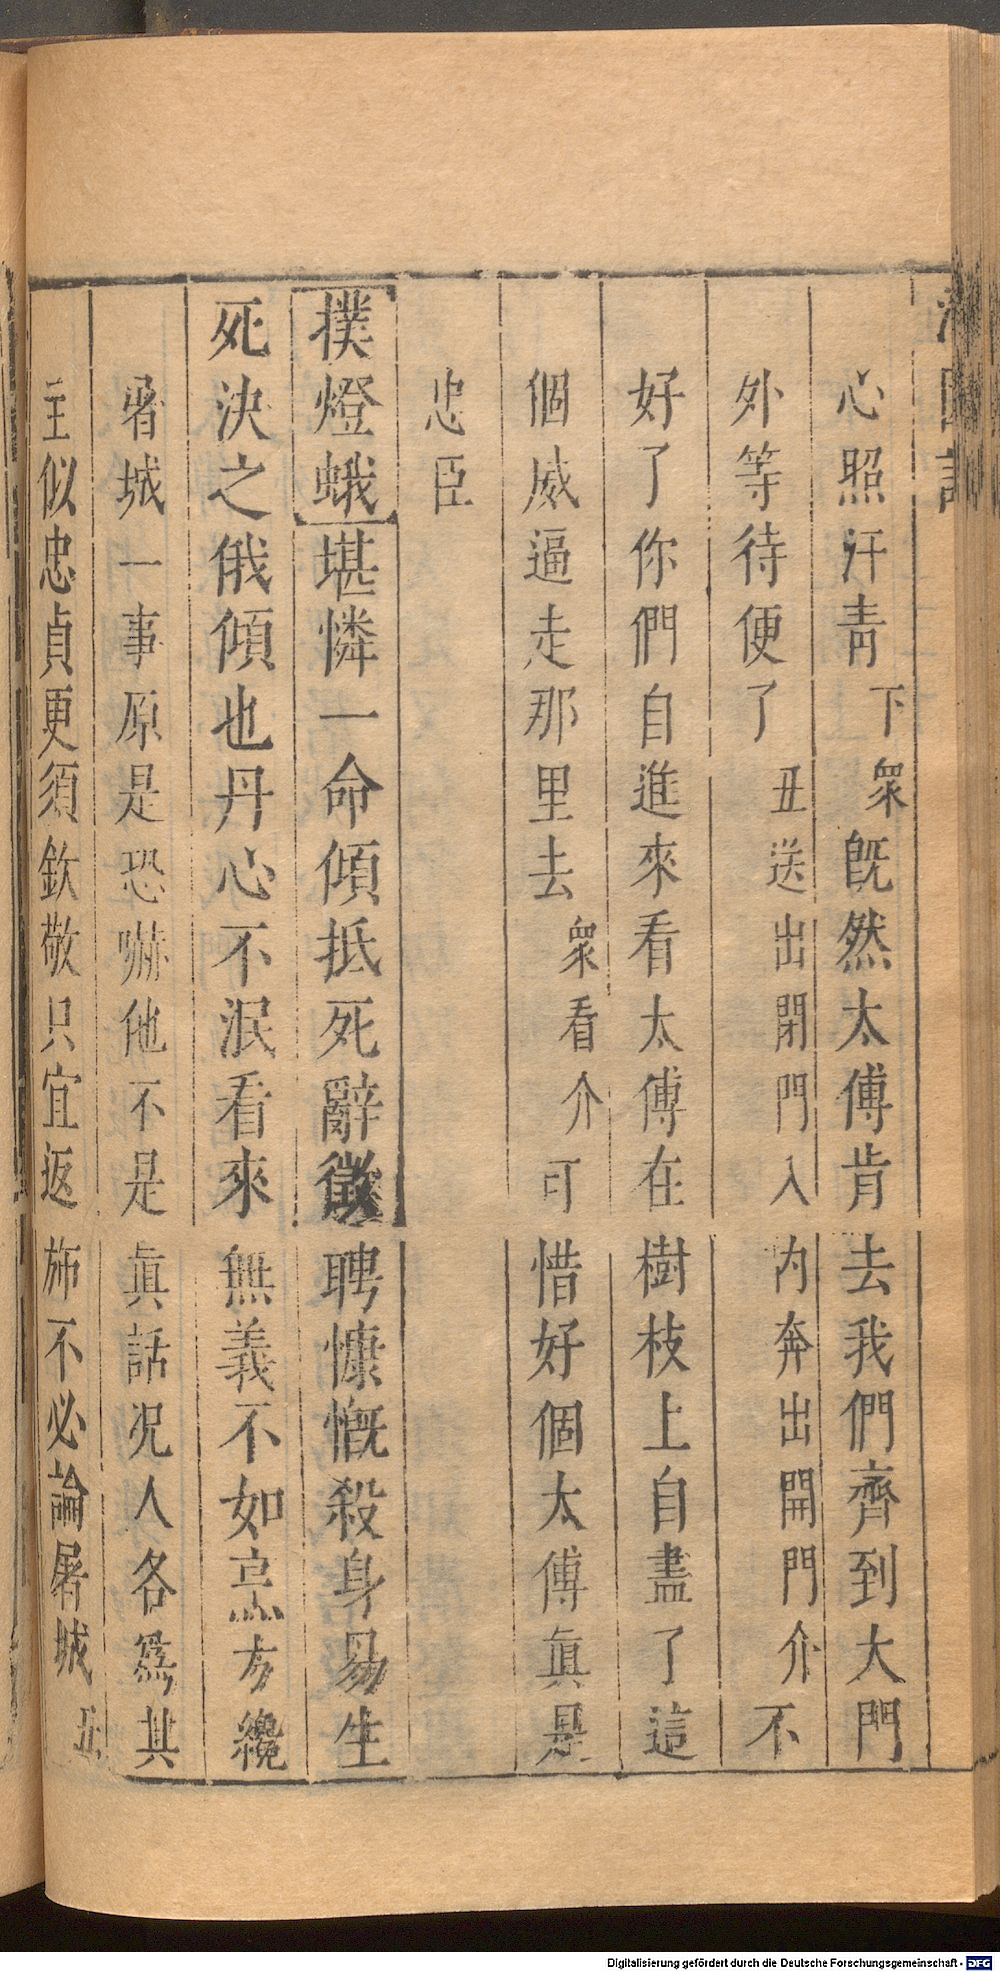 心照汗青下衆旣然太傅肯去我們齊到大門
外等待便了丑送出閉門入內奔出開門介不
好了你們自進來看太傅在樹枝上自盡了這
個威逼走那里去衆看介可惜好個太傅眞是
忠臣
撲燈蛾堪憐一命傾抵死辭徵聘慷慨殺身易生
死決之俄傾也丹心不泯看來無義不如烹方纔
屠城一事原是恐嚇他不是眞話况人各爲其
主似忠貞更須欽敬只宜返斾不必論屠城丑
Digitalisierung gefördert durch die Deutsche Forschungsgemeinschaft - DFG